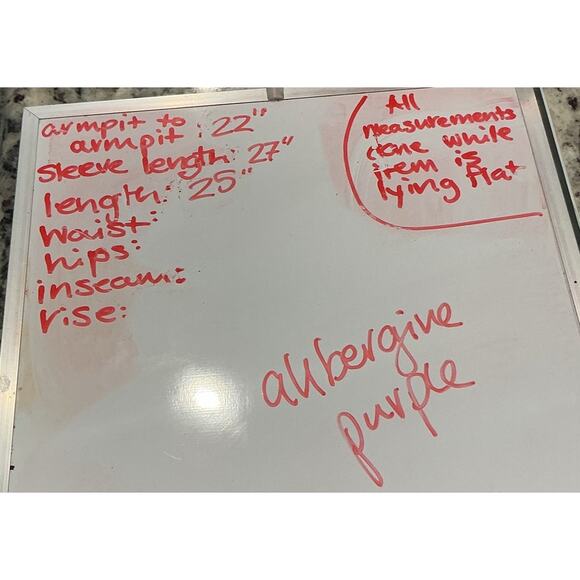 armpit to
armpit: 22"
sleeve length: 27"
length: 25"
waist:
hips:
inseam:
rise:
All
measurements
done while
item is
lying flat
ahbergine
purple